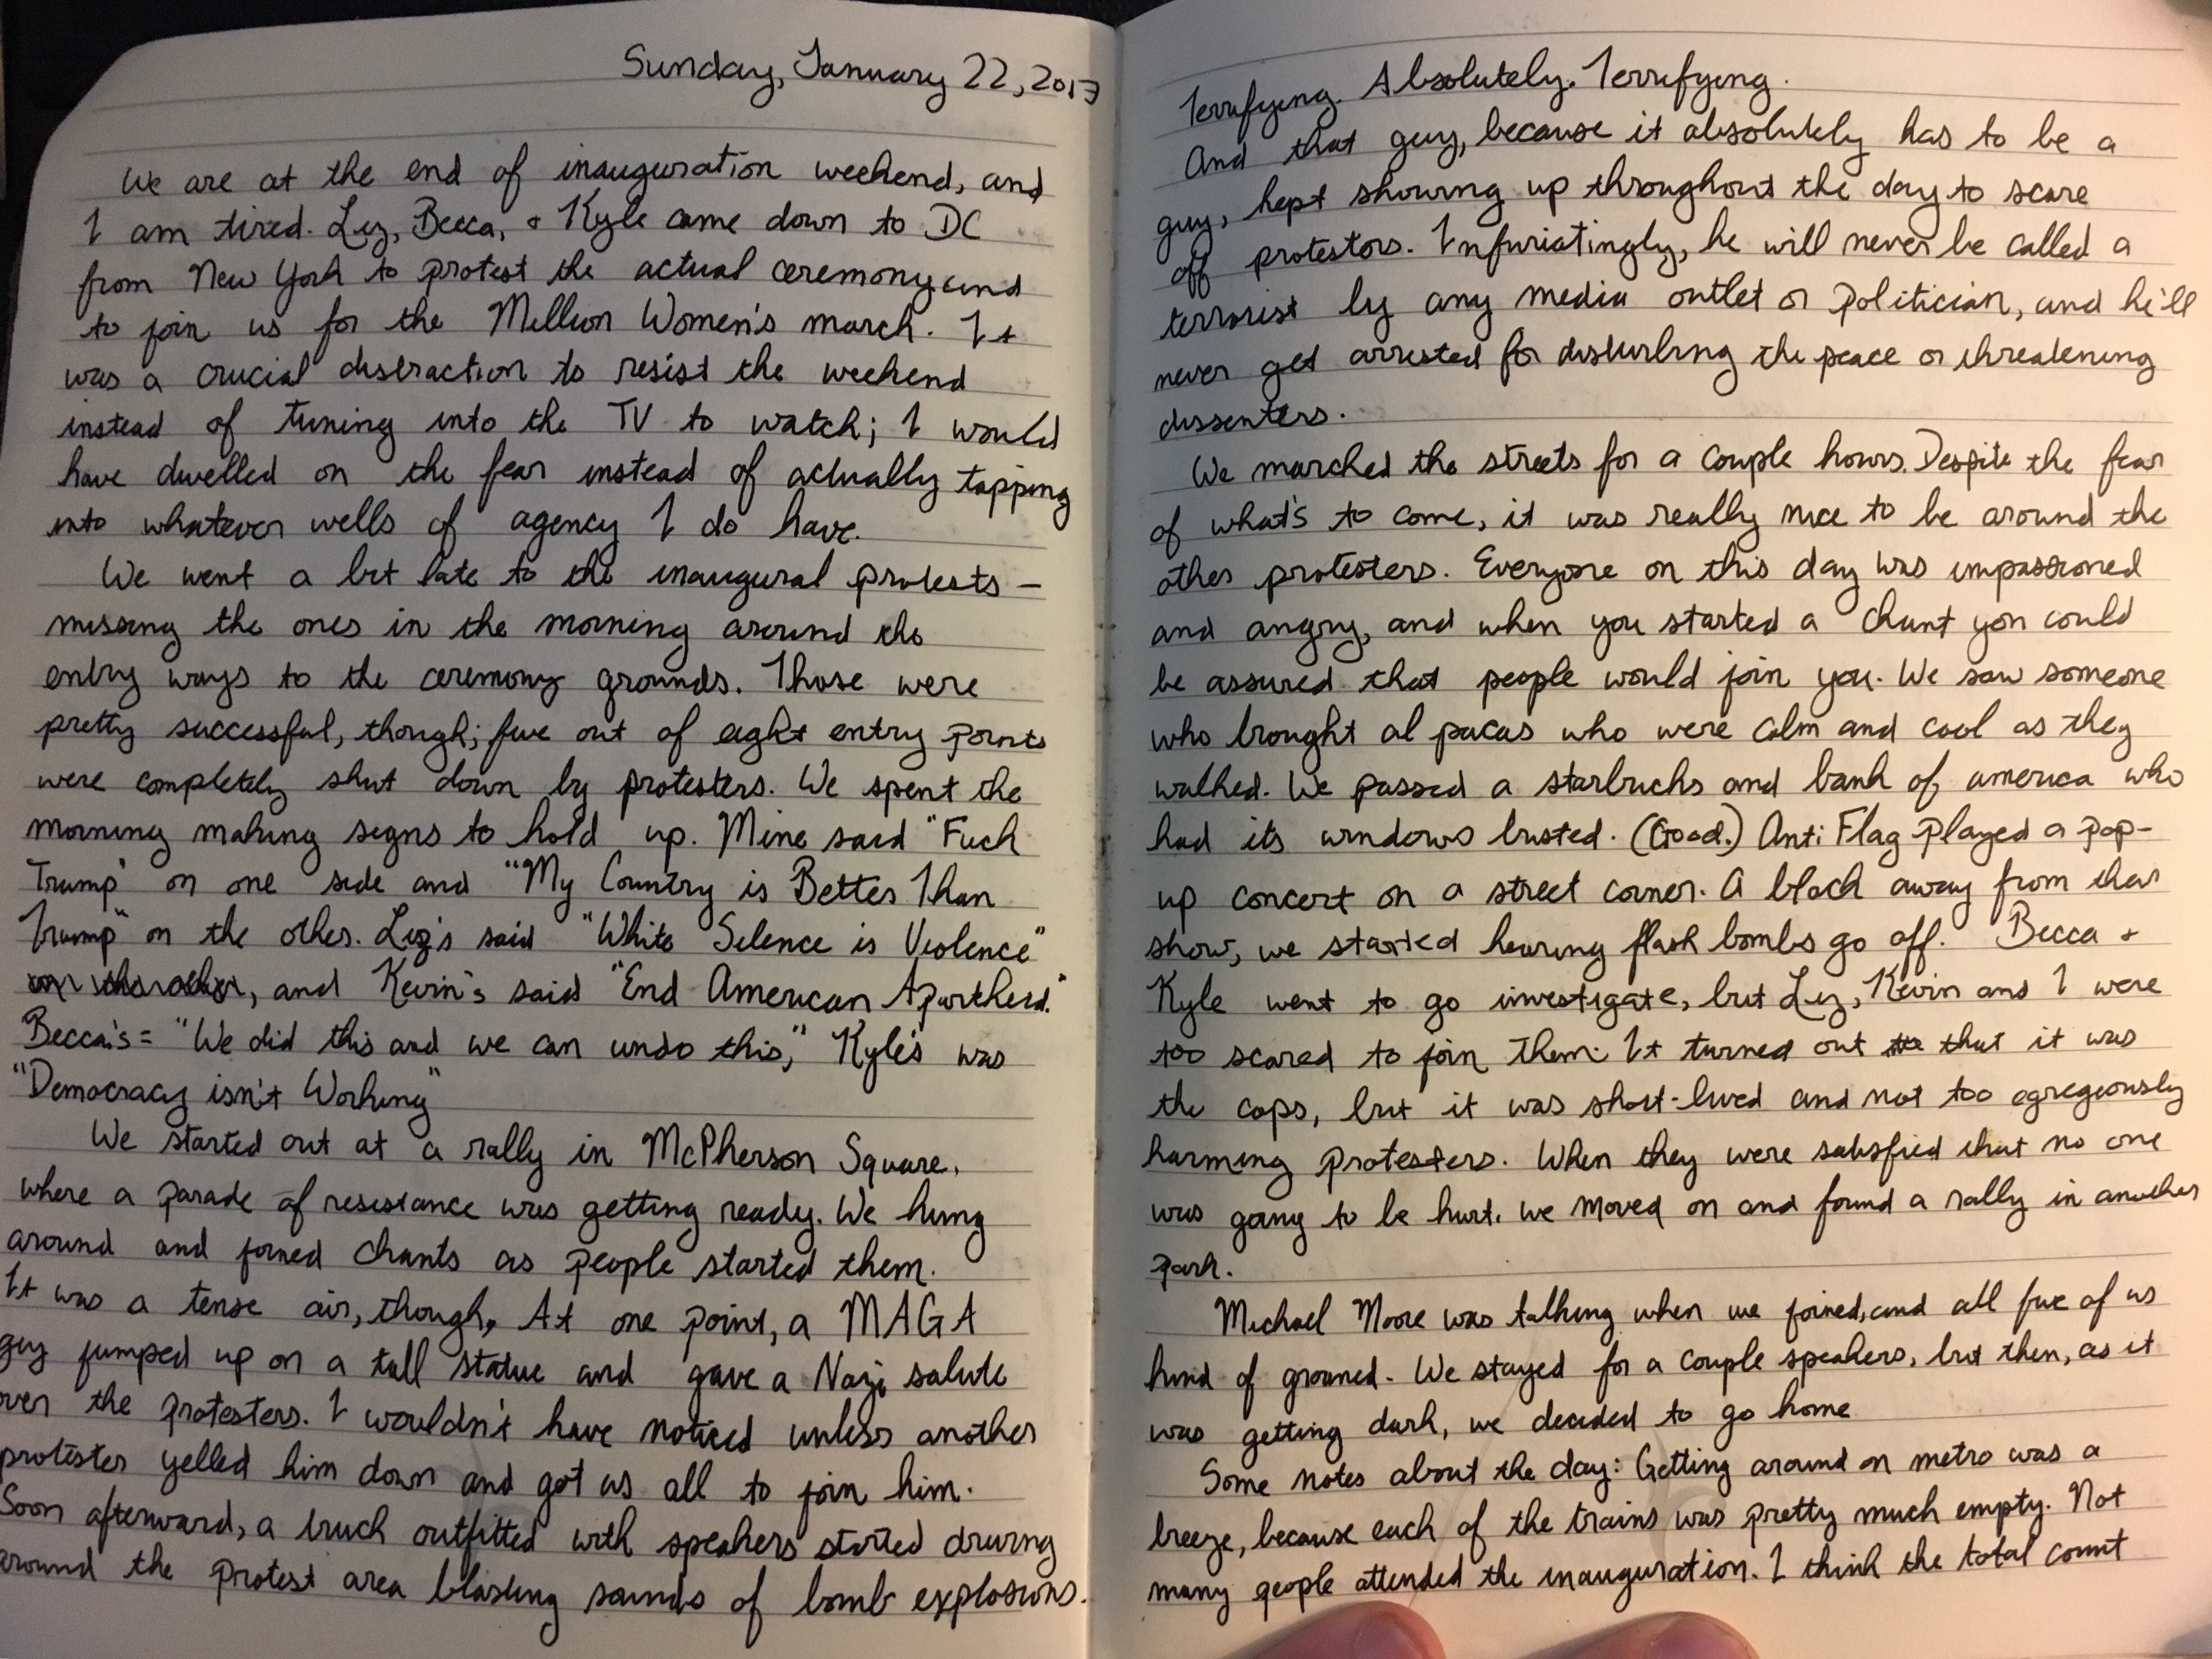 Sunday, January 22, 2017
We are at the end of inauguration weekend, and
I am tired. Liz, Becca, + Kyle came down to DC
from New York to protest the actual ceremony and
to join us for the Million Women's march. It
was a crucial distraction to resist the weekend
instead of tuning into the TV to watch; I would
have dwelled on the fear instead of actually tapping
into whatever wells of agency I do have.
We went a bit late to the inaugural protests –
missing the ones in the morning around the
entry ways to the ceremony grounds. Those were
pretty successful, though; five out of eight entry points
were completely shut down by protesters. We spent the
morning making signs to hold up. Mine said "Fuck
Trump" on one side and "My Country is Better Than
Trump" on the other. Liz's said "White Silence is Violence"
on the other, and Kevin's said "End American Apartheid."
Becca's = "We did this and we can undo this," Kyle's was
"Democracy isn't Working"
We started out at a rally in McPherson Square,
where a parade of resistance was getting ready. We hung
around and joined chants as people started them.
It was a tense air, though. At one point, a MAGA
guy jumped up on a tall statue and gave a Nazi salute
over the protesters. I wouldn't have noticed unless another
protester yelled him down and got us all to join him.
Soon afterward, a truck outfitted with speakers started driving
around the protest area blasting sounds of bomb explosions.
Terrifying. Absolutely. Terrifying.
And that guy, because it absolutely has to be a
guy, kept showing up throughout the day to scare
off protestors. Infuriatingly, he will never be called a
terrorist by any media outlet or politician, and he'll
never get arrested for disturbing the peace or threatening
dissenters.
We marched the streets for a couple hours. Despite the fear
of what's to come, it was really nice to be around the
other protesters. Everyone on this day was impassioned
and angry, and when you started a chant you could
be assured that people would join you. We saw someone
who brought al pacas who were calm and cool as they
walked. We passed a starbucks and bank of america who
had its windows busted. (Good.) Anti Flag played a pop-
up concert on a street corner. A block away from their
show, we started hearing flash bombs go off. Becca +
Kyle went to go investigate, but Liz, Kevin and I were
too scared to join them. It turned out the that it was
the cops, but it was short-lived and not too egregiously
harming protesters. When they were satisfied that no one
was going to be hurt, we moved on and found a rally in another
park.
Michael Moore was talking when we joined, and all five of us
kind of groaned. We stayed for a couple speakers, but then, as it
was getting dark, we decided to go home
Some notes about the day: Getting around on metro was a
breeze, because each of the trains was pretty much empty. Not
many people attended the inauguration. I think the total count